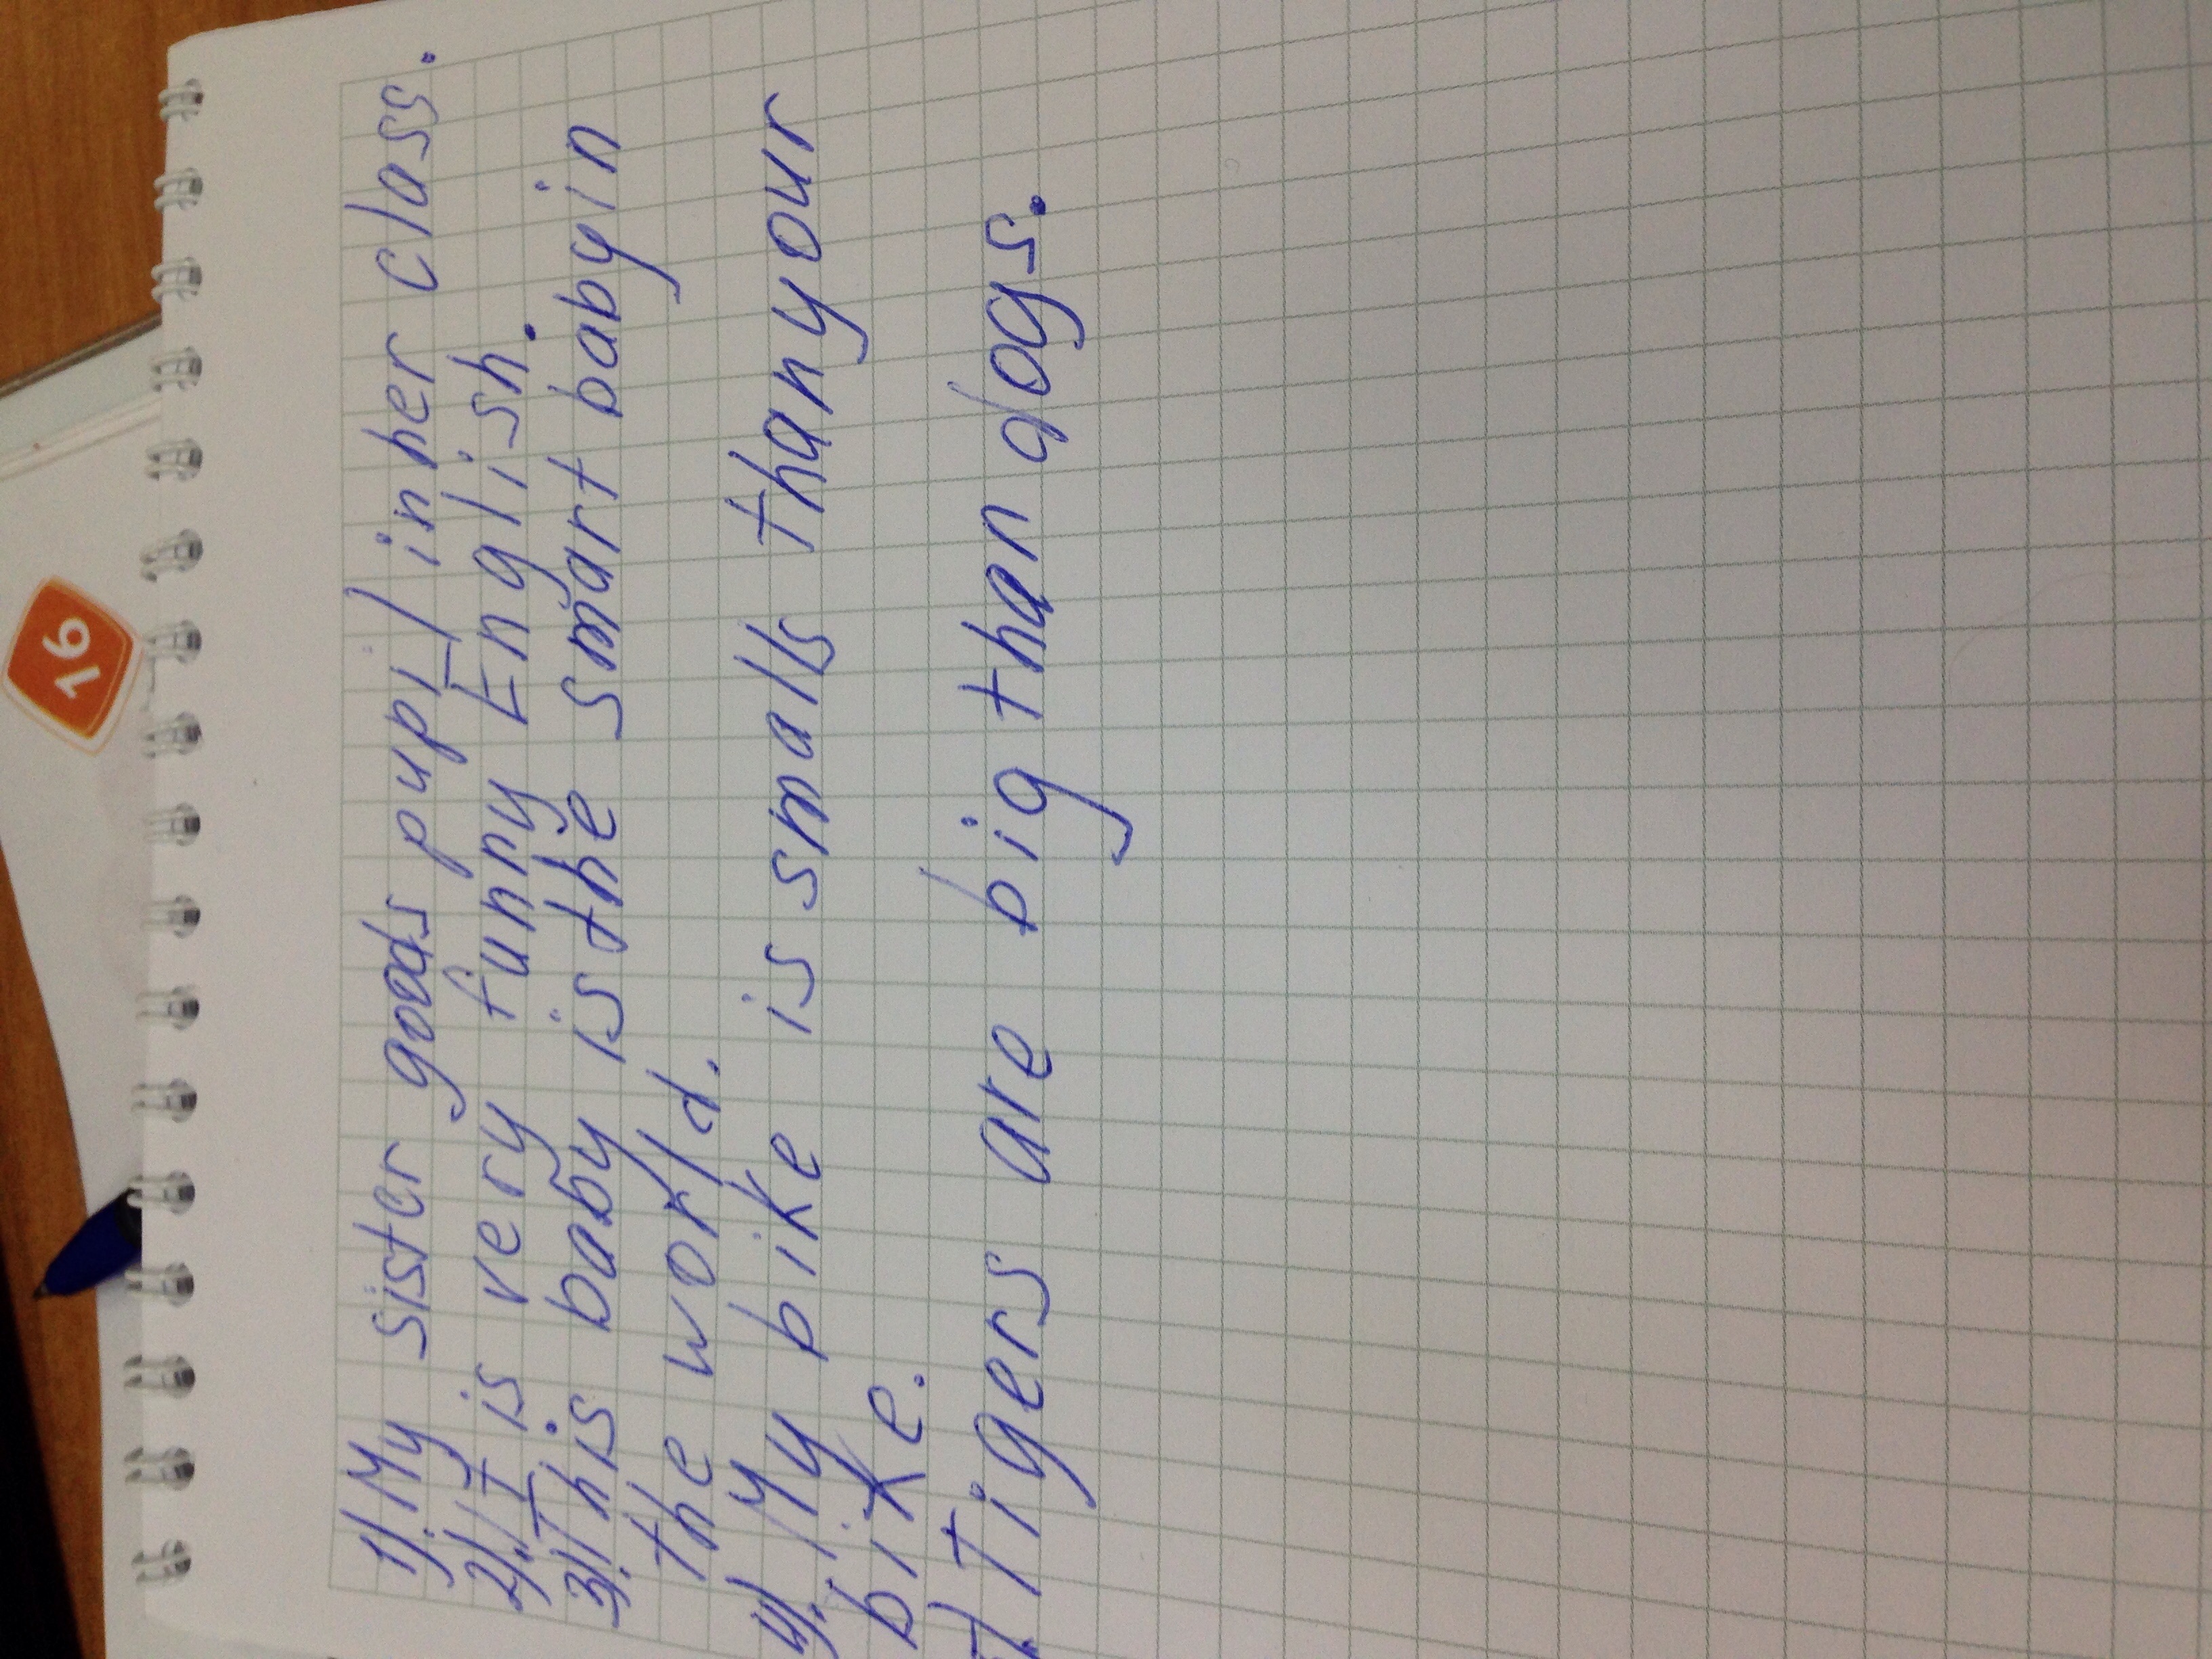 1) My sister goods pupil in her class.
2) It is very funny English.
3) This baby is the smart baby in
the world.
4) My bike is smalls than your
bike.
Tigers are big than dogs.
16